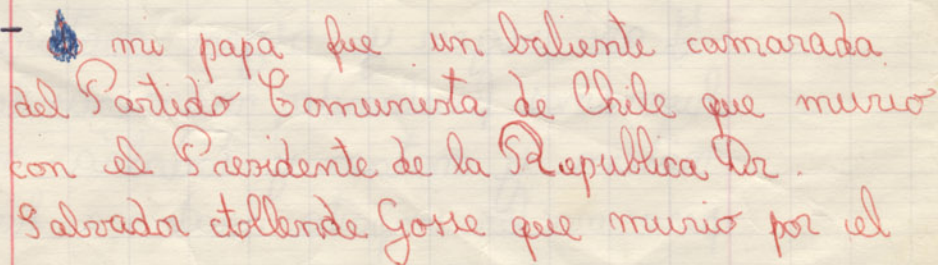 - mi papa fue un baliente camarada
del Partido Comunista de Chile que murio
con el Presidente de la Republica Dr.
Salvador Allende Gosse que murio por el